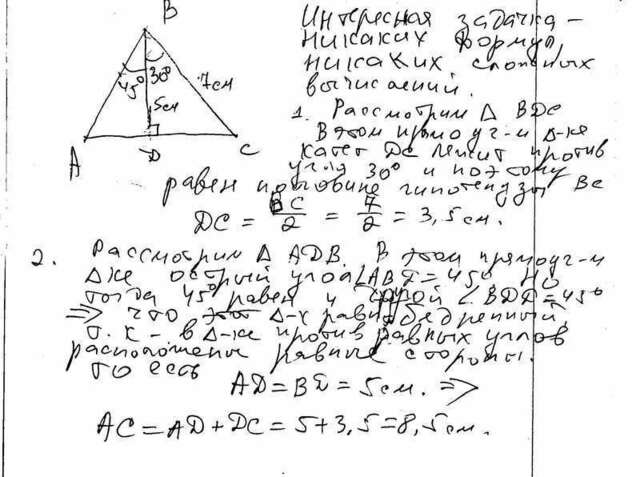 B
45°
30°
7см
5см
A
D
C
Интересная задачка –
никаких формул,
никаких сложных
вычислений.
1. Рассмотрим Δ BDC
В этом прямоуг-м Δ-ке
катет DC лежит против
угла 30° и поэтому
равен половине гипотенузы BC
DC = BC/2 = 7/2 = 3,5 см.
2. Рассмотрим Δ ADB. В этом прямоуг-м
Δке острый угол ∠ABD = 45° но
тогда 45° равен и = 45°
=> что Δ-к равнобедренный
т.к - в Δ-ке против равных углов
расположены равные стороны.
то есть
AD = BD = 5 см. =>
AC = AD + DC = 5 + 3,5 = 8,5 см.